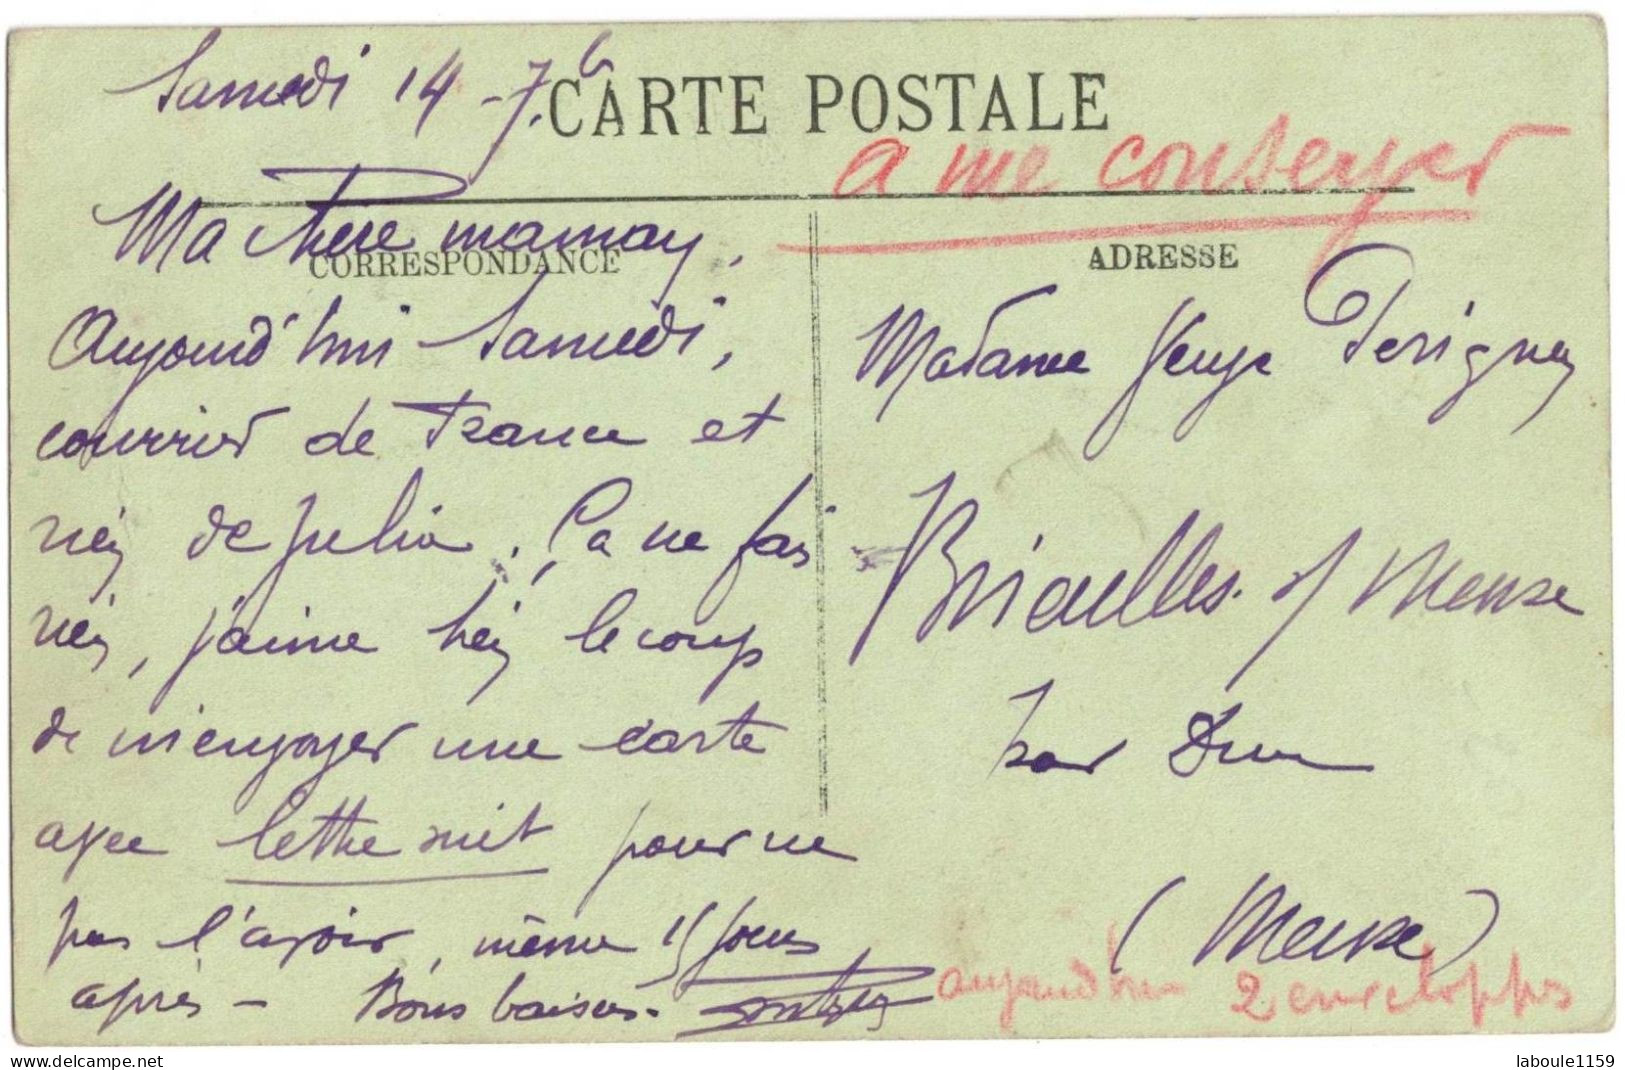 Samedi 14 - 7b
CARTE POSTALE
a me conserver
Ma chère maman,
CORRESPONDANCE
Aujourd'hui Samedi,
courrier de France et
rien de Julia. Ça ne fais
rien, j'aime bien le coup
de m'envoyer une carte
avec lettre suit pour ne
pas l'avoir, même 15 jours
après - Bons baisers.
ADRESSE
Madame
Brieulles s/ Meuse
par Dun
(Meuse)
aujourd'hui 2 enveloppes
laboule1159